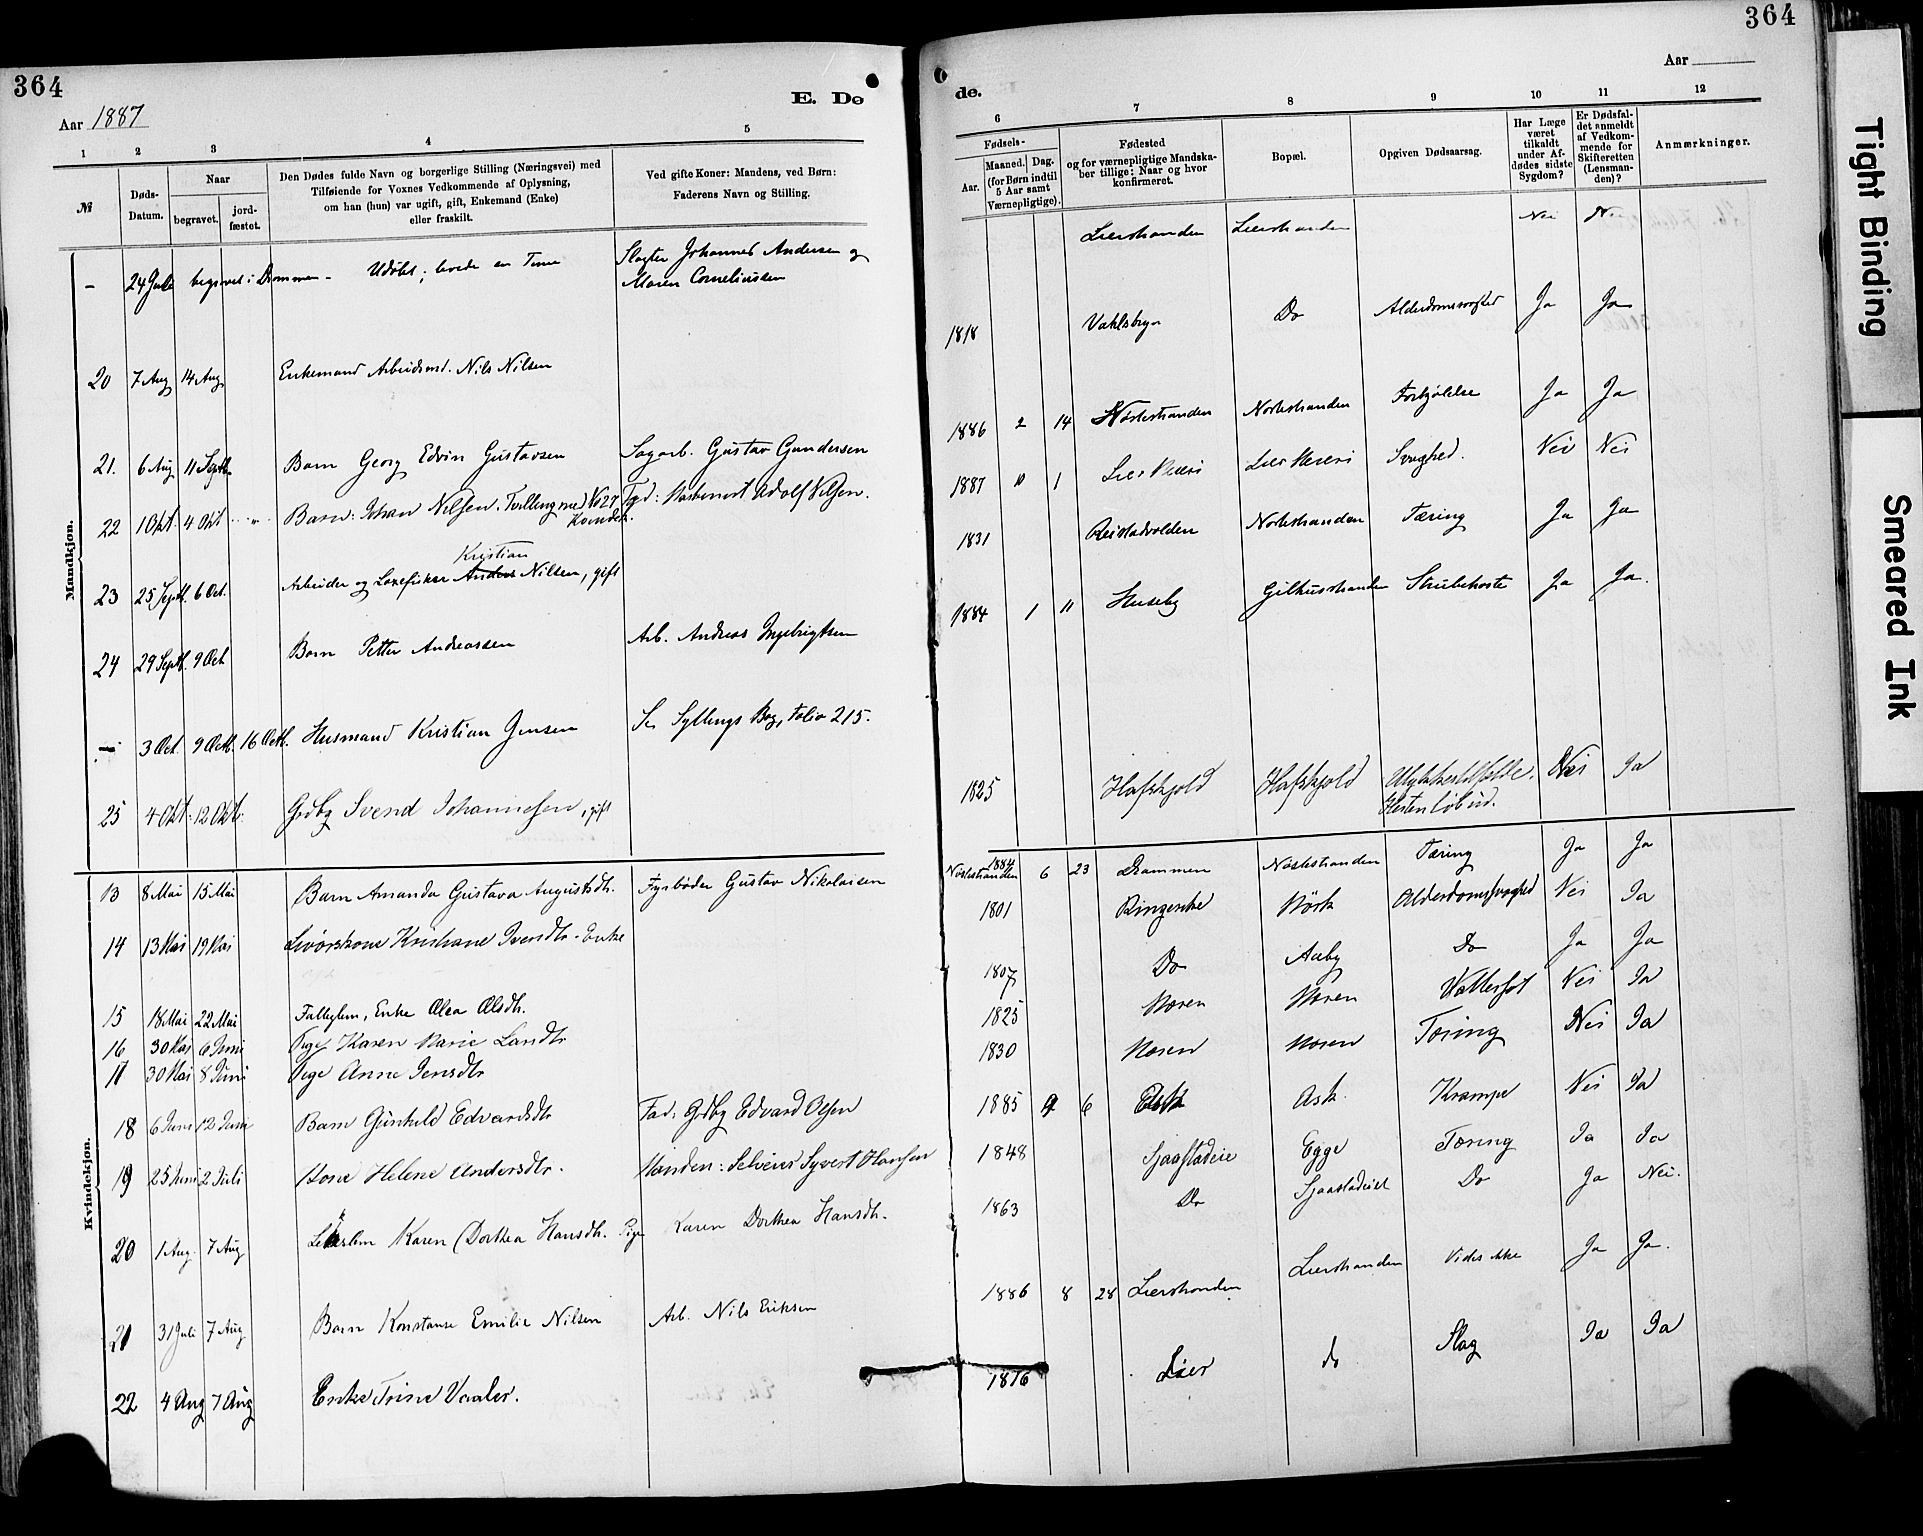 364
Aar 1887
E. Dø
1 2 3 4 5
№
Døds-Datum.
Naar
begravet.
jord-fæstet.
Den Dødes fulde Navn og borgerlige Stilling (Næringsvei) med
Tilføiende for Voxnes Vedkommende af Oplysning,
om han (hun) var ugift, gift, Enkemand (Enke)
eller fraskilt.
Ved gifte Koner: Mandens, ved Børn:
Faderens Navn og Stilling.
Mandkjøn.
- 24 Juli begravet i Drammen - Udøbt; levede en Time Slagter Johannes Andersen og
Maren Corneliussen
20 7 Aug 14 Aug Enkemand Arbeidsmd. Nils Nilsen
21. 6 Aug 11 Septb. Barn Georg Edvin Gustavsen Sagarb. Gustav Gundersen
22 1 Okt. 4 Okt " Barn: Johan Nilsen. Tvilling med No 27 Kvindek. Adolf Nilsen.
Kristian
23 25 Septb. 6 Oct. Arbeider og Laxefisker Anders Nilsen, gift
24 29 Septb. 9 Oct Barn Petter Andreassen Arb. Andreas Ingebrigtsen
- 3 Oct. 9 Octb. 16 Octb. Husmand Kristian Jensen Se Syllings Bog, Folio 215.
25 4 Okt. 12 Okt. Grdbg Svend Johannesen, gift
Kvindekjøn.
13 8 Mai 15 Mai Barn Amanda Gustava Augustsdtr. Fyrbøder Gustav Nikolaisen
14 13 Mai 19 Mai Kristiane Svendtr. Enke
15 18 Mai 22 Mai Fattiglem, Enke Olea Olsdtr.
16 30 Mai 6 Juni Pige Karen Marie Larsdtr
17 30 Mai 8 Juni Pige Anne Jensdtr
18 6 Juni 12 Juni Barn Gunhild Edvardsdtr Fad: Grdbg Edvard Olsen
19 25 Juni 2 Juli Kone Helene Andersdtr. Manden: Selveier Syvert Hansen
20 1 Aug. 7 Aug Karen Dorthea Hansdtr. Pige Karen Dorthea Hansdtr.
21 31 Juli 7 Aug Barn Konstanse Emilie Nilsen Arb. Nils Eriksen
22 4 Aug 7 Aug Enke Trine Vaaler.
364
Aar
de.
6 7 8 9 10 11 12
Fødsels-
Aar.
Maaned. Dag.
(for Børn indtil
5 Aar samt
Værnepligtige).
Fødested
og for værnepligtige Mandska-
ber tillige: Naar og hvor
konfirmeret.
Bopæl.
Opgiven Dødsaarsag.
Har Læge
været
tilkaldt
under Af-
dødes sidste
Sygdom?
Er Dødsfal-
det anmeldt
af Vedkom-
mende for
Skifteretten
(Lensman-
den)?
Anmærkninger.
Lierstranden Lierstranden Nei Nei
1818 Do Ja Ja
1886 2 14 Nøstestranden Nøstestranden Forkjølelse Ja Ja
1887 10 1 Lier Meieri Lier Meieri Svaghed. Nei Nei
1831 Nøstestranden Tæring Ja Ja
1884 1 11 Huseby Gilhusstranden Strubehoste Ja Ja.
1825 Hafskjold Hafskjold Ulykkestilfælde. Nei Ja
Hesten løb ud.
1884
Nøstestranden 6 23 Drammen Nøstestranden Tæring Ja Ja
1801 Ringerike Mørk Alderdomssvaghed Nei Ja
1807 Do Aaby Do Ja Ja
1825 Moren Moren Vattersot Nei Ja
1830 Moren Moren Tæring Nei Ja
1885 9 6 Ask Ask. Krampe Nei Ja
1848 Sjaastadeie Egge Tæring Ja Ja
1863 Do Sjaastadeiet Do Ja Nei.
1886 8 28 Lierstranden Lierstranden Vides ikke Ja Ja.
1816 Lier do Slag Ja Ja
Tight Binding
Smeared Ink